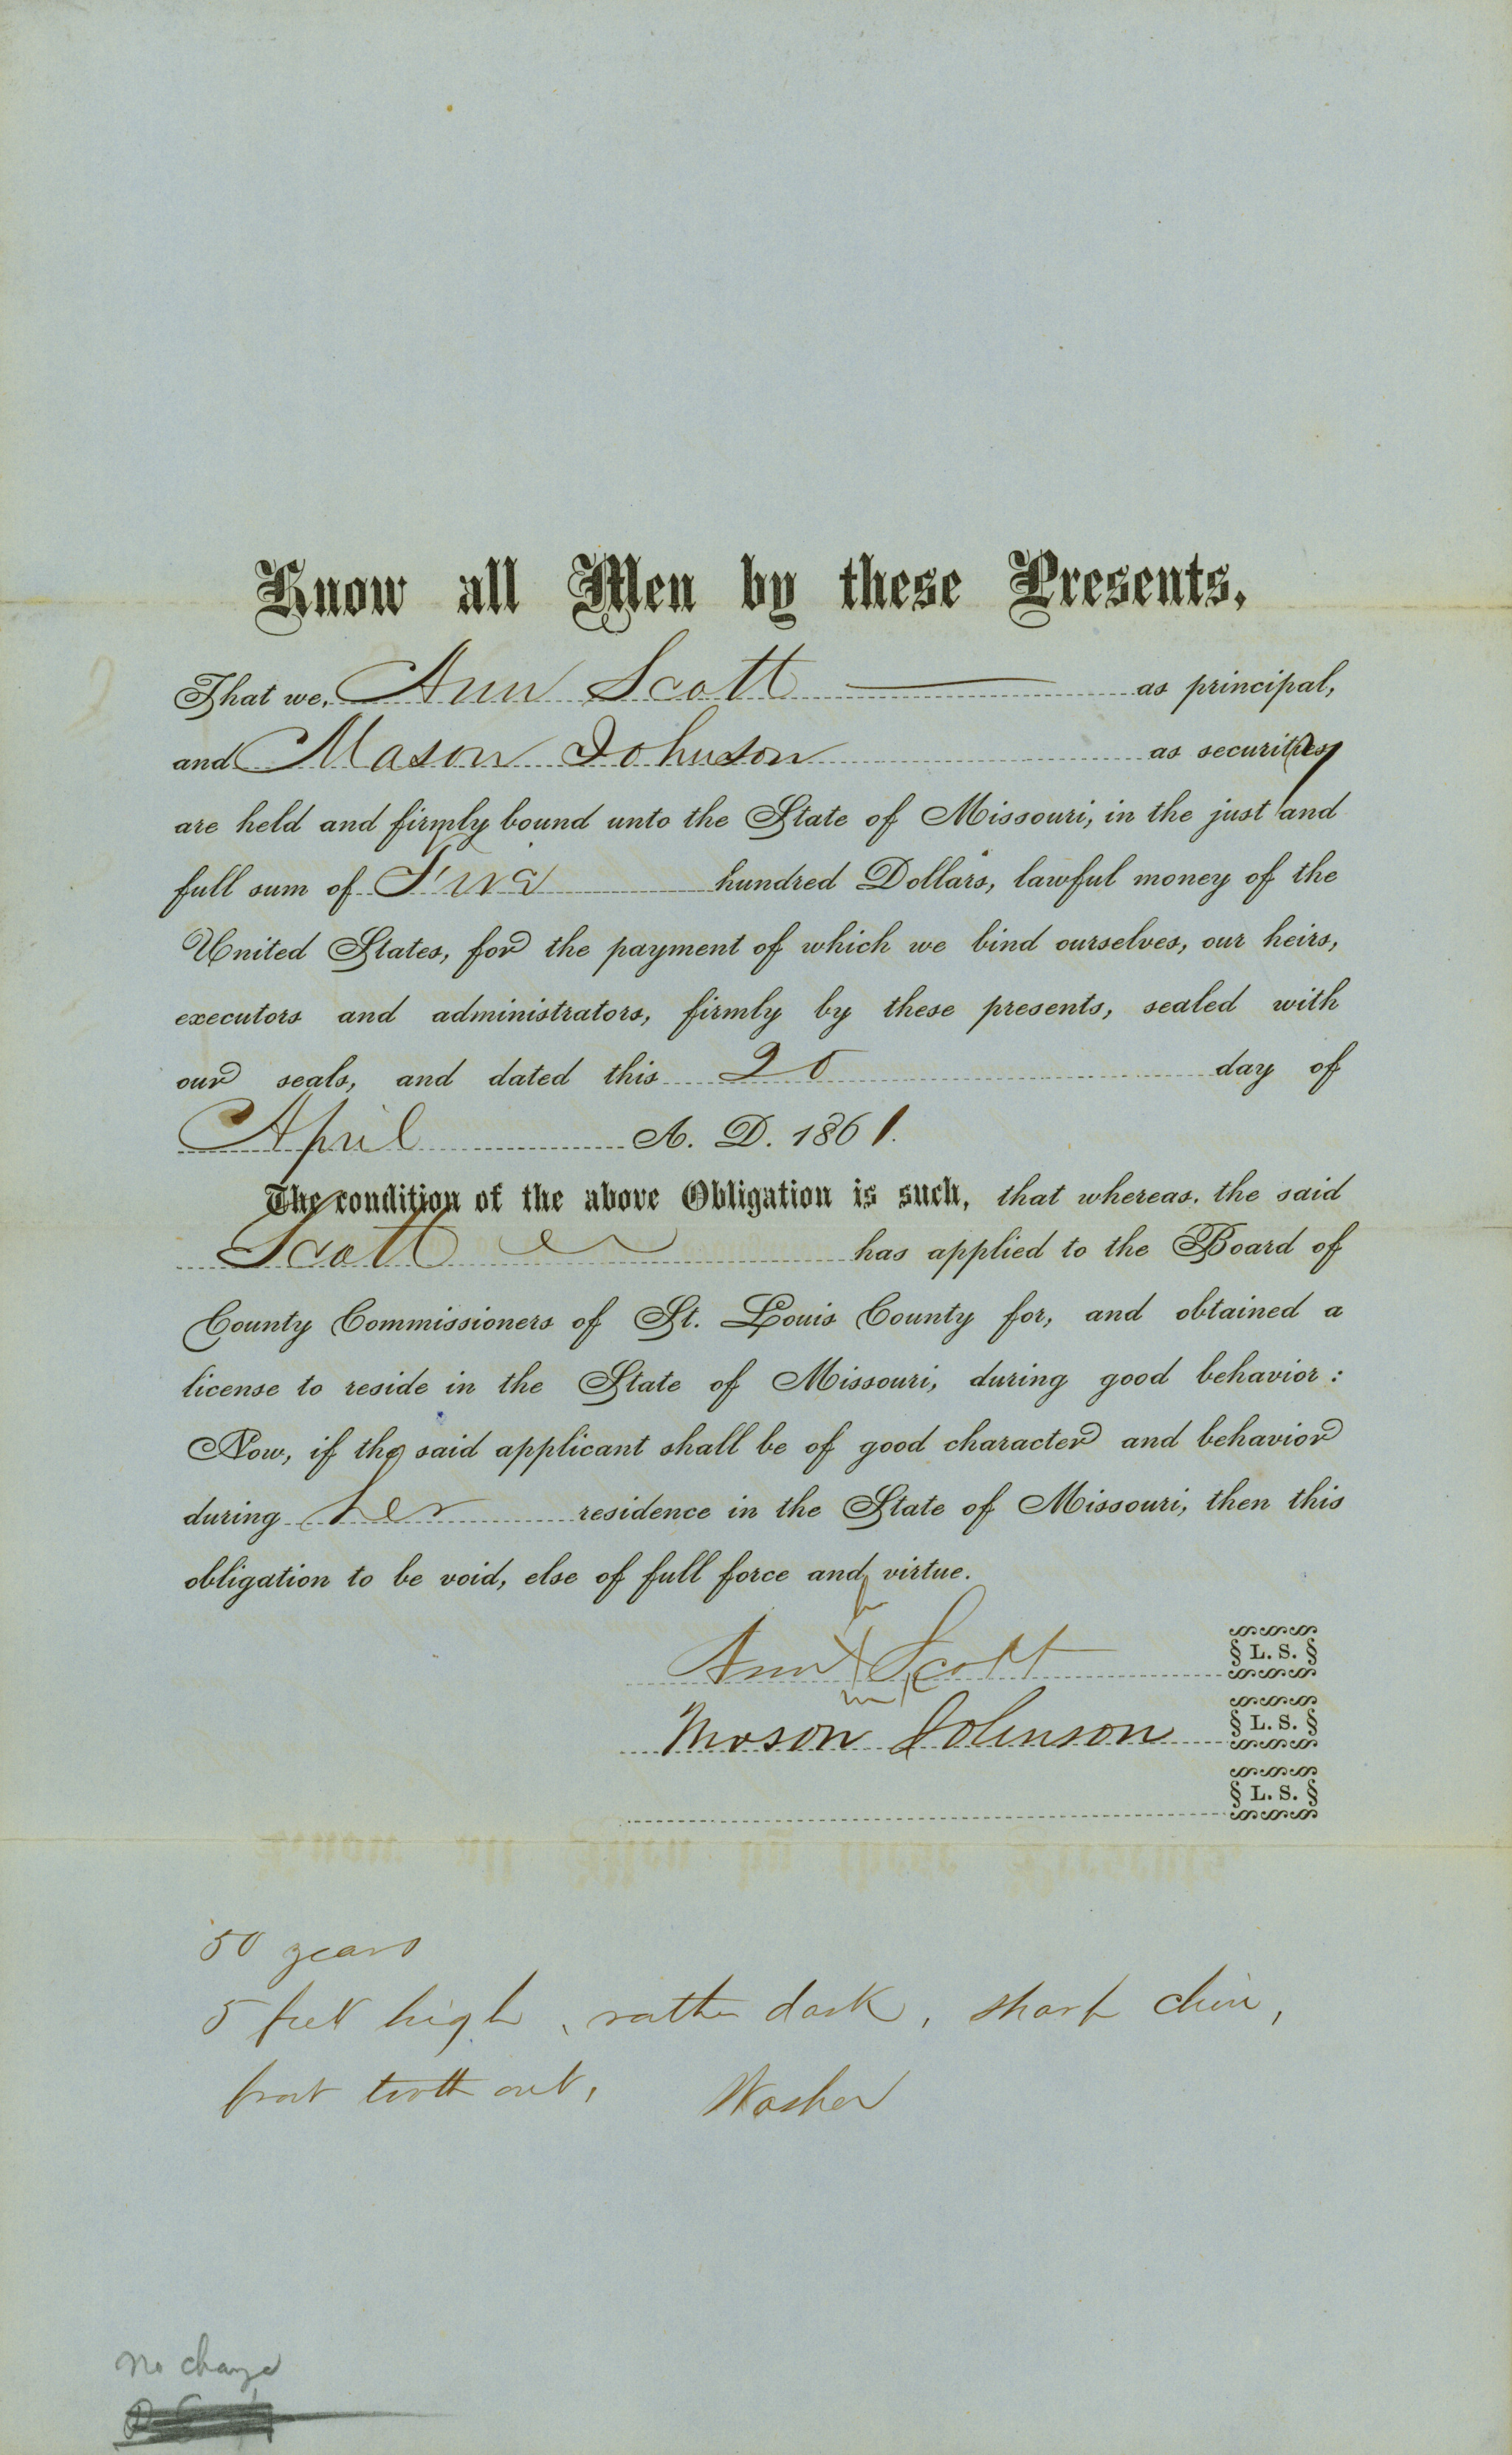 Know all Men by these Presents,
That we, Ann Scott as principal,
and Mason Johnson as security
are held and firmly bound unto the State of Missouri, in the just and
full sum of Two hundred Dollars, lawful money of the
United States, for the payment of which we bind ourselves, our heirs,
executors and administrators, firmly by these presents, sealed with
our seals, and dated this 20 day of
April A. D. 1861.
The condition of the above Obligation is such, that whereas, the said
Scott has applied to the Board of
County Commissioners of St. Louis County for, and obtained a
license to reside in the State of Missouri, during good behavior:
Now, if the said applicant shall be of good character and behavior
during her residence in the State of Missouri, then this
obligation to be void, else of full force and virtue.
Ann X Scott § L. S. §
Mason Johnson § L. S. §
§ L. S. §
50 years
5 feet high, rather dark, sharp chin,
front tooth out, Washer
No change